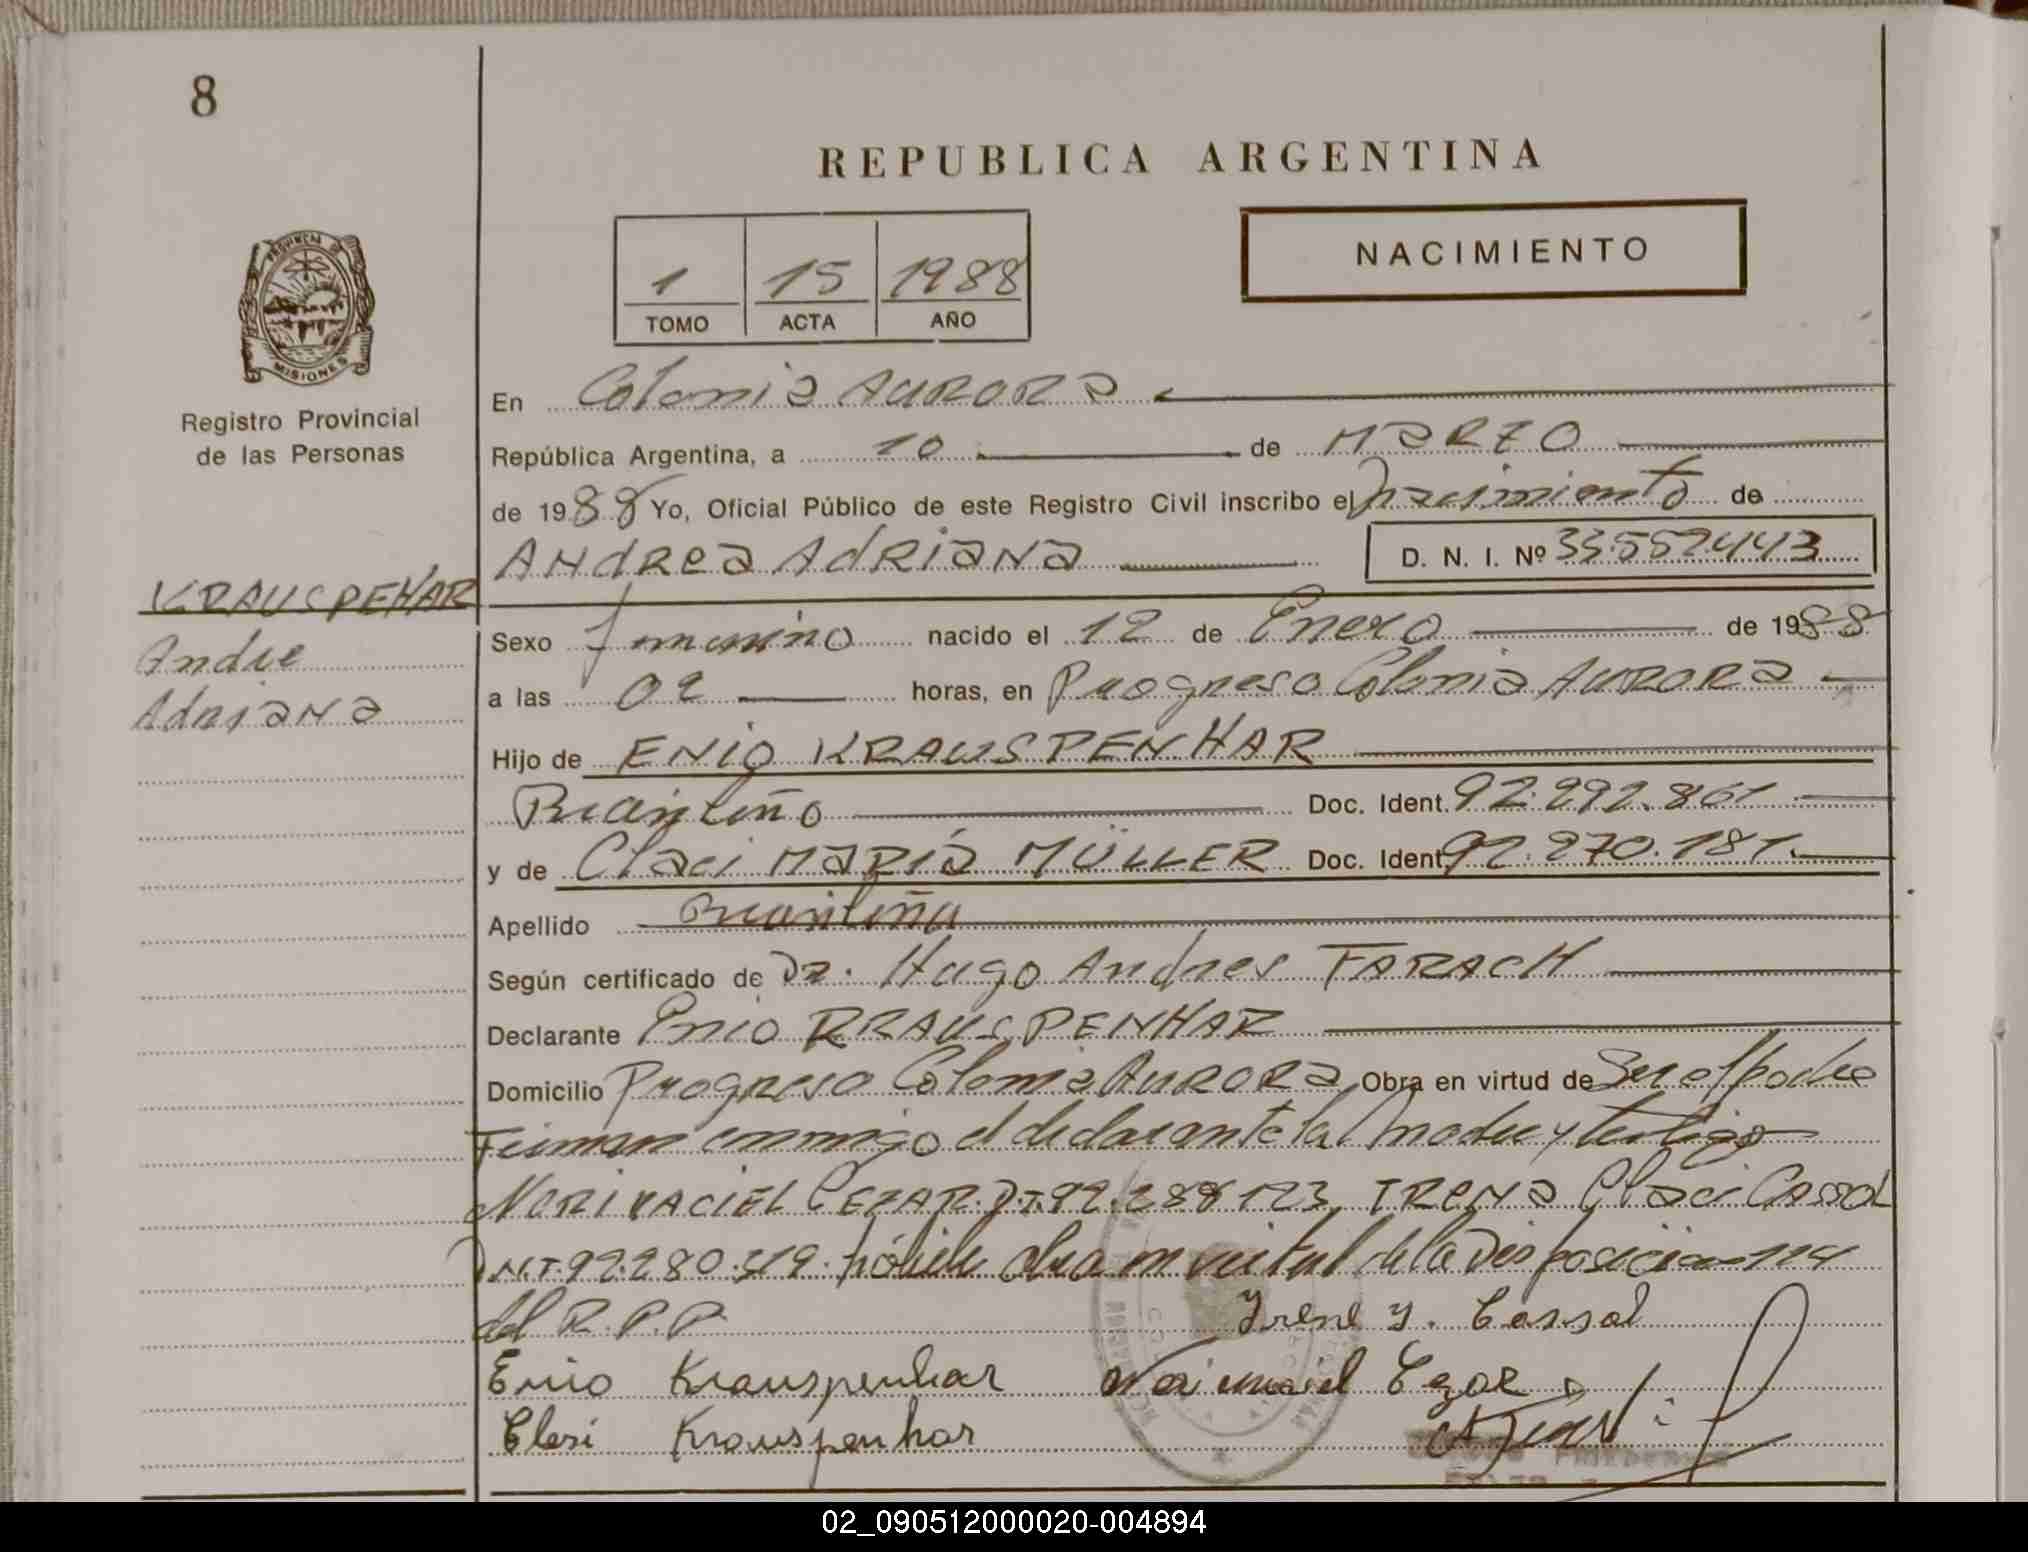 8
REPUBLICA ARGENTINA
NACIMIENTO
1 15 1988
TOMO ACTA AÑO
PROVINCIA DE
MISIONES
Registro Provincial
de las Personas
KRAUSPENHAR
Andre
Adriana
En Colonia AURORA
República Argentina, a 10 de MARZO
de 1988 Yo, Oficial Público de este Registro Civil inscribo el nacimiento de
ANdRea AdRiaNa D. N. I. Nº 33.552.443
Sexo femenino nacido el 12 de Enero de 1988
a las 02 horas, en Progreso Colonia AURORA
Hijo de ENIO KRAUSPENHAR
Brasileño Doc. Ident. 92.292.861
y de Claci MARÍA MÜLLER Doc. Ident. 92.270.181.
Apellido Brasileña
Según certificado de Dr. Hugo Andres FARACH
Declarante Enio KRAUSPENHAR
Domicilio Progreso Colonia AURORA Obra en virtud de Ser el padre
Firman conmigo el declarante la madre y testigo
CEZAR. IRENA Claci Cassol
D.N.I. 92.280.519. obra en virtud de la Disposicion 114
del R.P.P.
Irene Y. Cassol
Enio Krauspenhar Cezar
Claci Krauspenhar
02_090512000020-004894